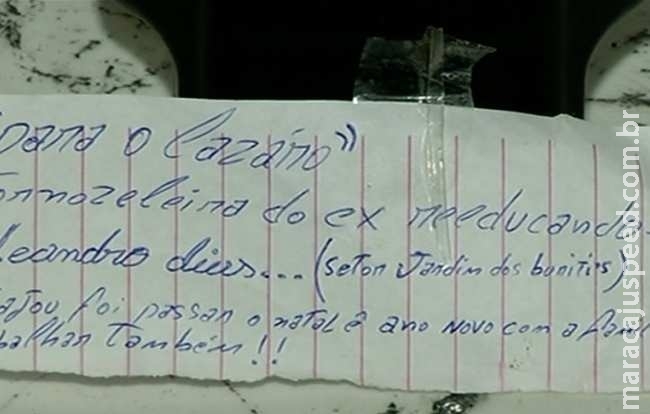 "para o Lazaro"
tornozeleira do ex reeducando
Leandro dias... (setor Jardim dos buritis)
foi passar o natal e ano Novo com a famí
balhar também!!
maracajuspeed.com.br